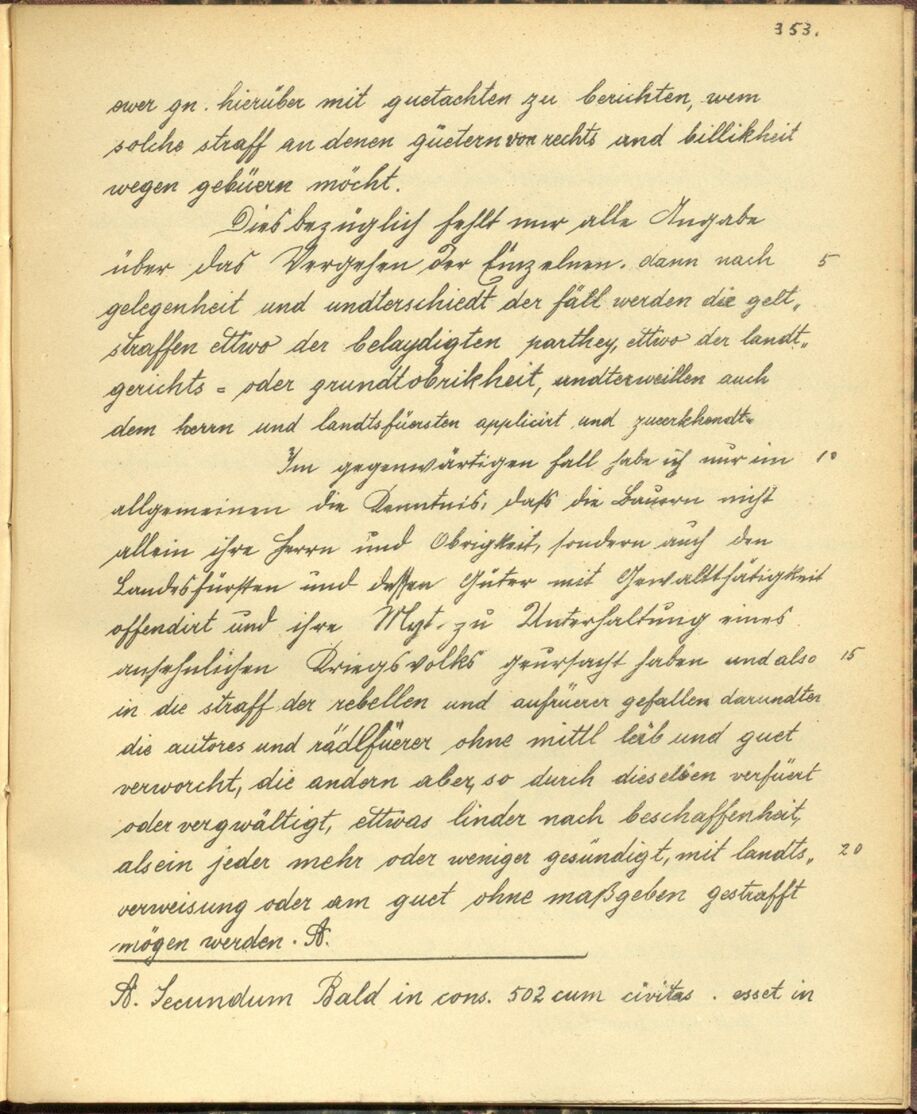 353.
ewer gn. hierüber mit guetachten zu berichten, wem
solche straff an denen güetern von rechts und billikheit
wegen gebüern möcht.
Diesbezüglich fehlt mir alle Angabe
über das Vergehen der Einzelnen. dann nach 5
gelegenheit und undterschiedt der fäll werden die gelt„
straffen ettwo der belaydigten parthey, ettwo der landt„
gerichts = oder grundtobrikheit, undterweillen auch
dem herrn und landtsfüersten applicirt und zuerkhendt.
Im gegenwärtigen Fall habe ich nur im 10
allgemeinen die Kenntnis, daß die Bauern nicht
allein ihre Herrn und Obrigkeit, sondern auch den
Landesfürsten und dessen Güter mit Gewaltthätigkeit
offendirt und ihre Mgt. zu Unterhaltung eines
ansehnlichen Kriegsvolks geursacht haben und also 15
in die straff der rebellen und aufrüerer gefallen darundter
die autores und rädlfüerer ohne mittl leib und guet
verworcht, die andern aber, so durch dieselben verfüert
oder vergwältigt, ettwas linder nach beschaffenheit,
als ein jeder mehr oder weniger gesündigt, mit landts„ 20
verweisung oder am guet ohne maßgeben gestrafft
mögen werden. A.
A. Secundum Bald in cons. 502 cum civitas . esset in